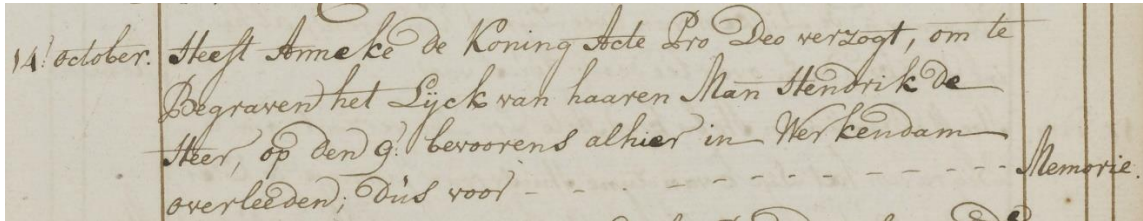 14.' october. Heeft Anneke de Koning Acte Pro Deo verzogt, om te
Begraven het Lijck van haaren Man Hendrik de
Heer, op den 9.' bevoorens alhier in Werkendam
overleeden; dùs voor - - - - - - - - - - - Memorie.